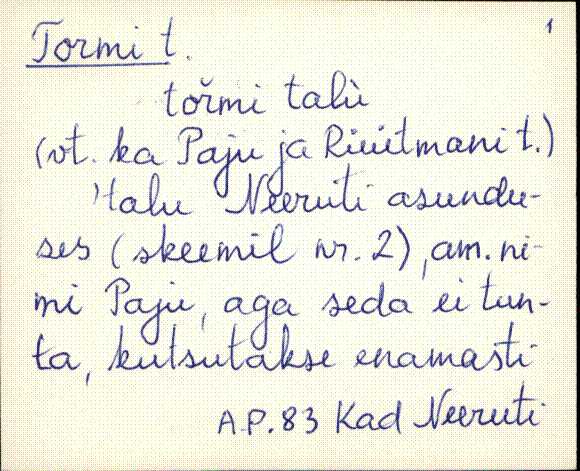 1
Tormi t.
tořmi talù
(vt. ka Paju ja Riuitmani t.)
'talu Neeruti asundu-
ses (skeemil nr. 2), am. ni-
mi Paju, aga seda ei tun-
ta, kutsutakse enamasti
A.P. 83 Kad Neeruti